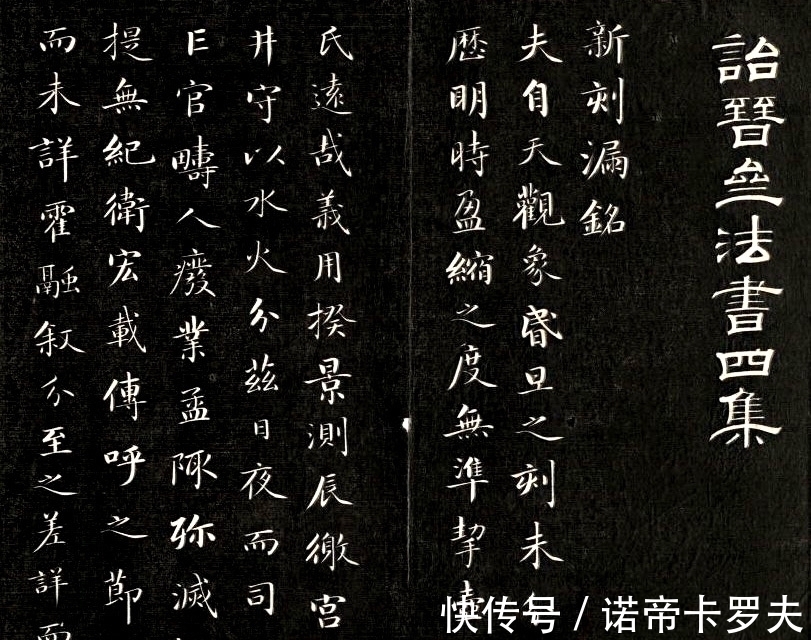 詒晉亝法書四集
新刻漏銘
夫自天觀象昬旦之刻未
歷明時盈縮之度無準挈壺
氏遠哉義用揆景測辰徼宮
井守以水火分茲日夜而司
亡官疇人廢業孟陬殄滅
提無紀衛宏載傳呼之節
而未詳霍融叙分至之差詳而
快传号 / 诺帝卡罗夫